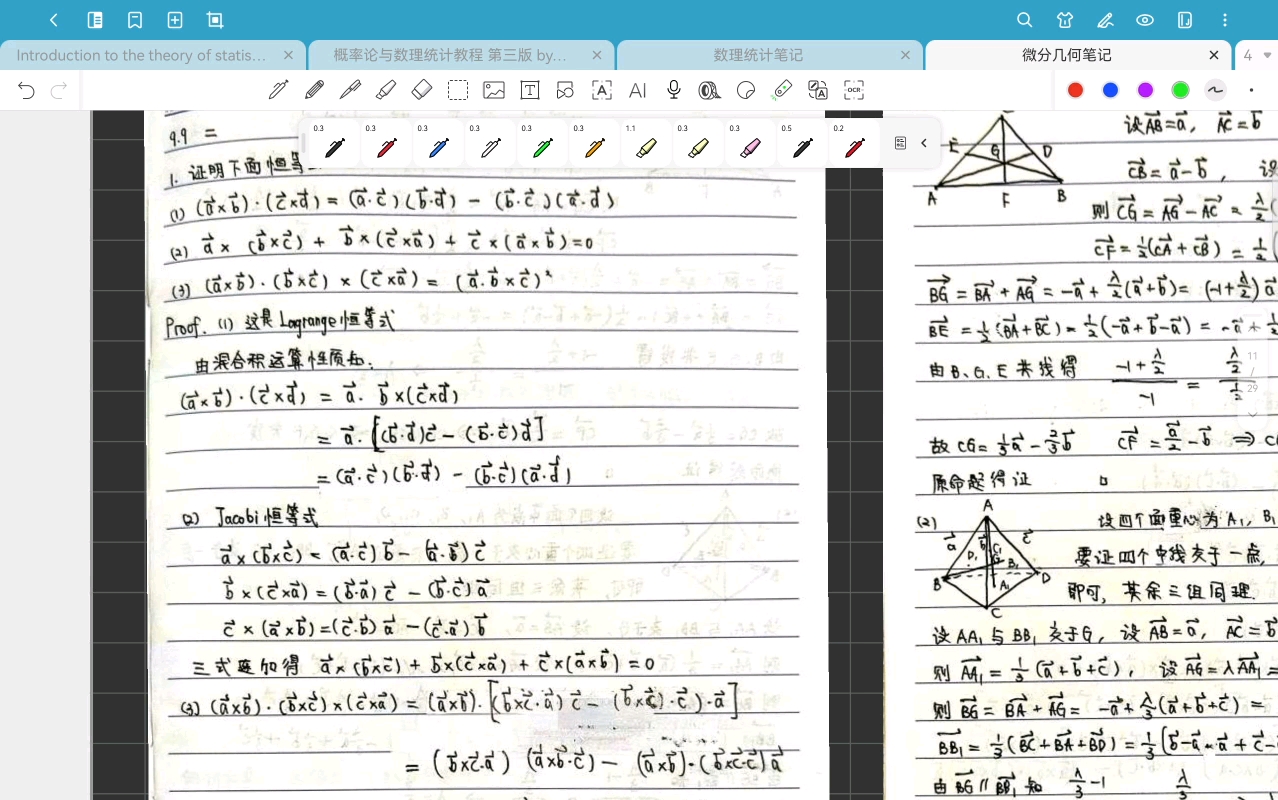 Introduction to the theory of statis...
概率论与数理统计教程 第三版 by...
数理统计笔记
微分几何笔记
4
AI
OCR
0.3 0.3 0.3 0.3 0.3 0.3 1.1 0.3 0.3 0.5 0.2
9.9 =
1. 证明下面恒等
(1) (a⃗×b⃗)·(c⃗×d⃗) = (a⃗·c⃗)(b⃗·d⃗) − (b⃗·c⃗)(a⃗·d⃗)
(2) a⃗×(b⃗×c⃗) + b⃗×(c⃗×a⃗) + c⃗×(a⃗×b⃗)=0
(3) (a⃗×b⃗)·(b⃗×c⃗)×(c⃗×a⃗) = (a⃗·b⃗×c⃗)²
Proof. (1) 这是Lagrange恒等式
由混合积运算性质知.
(a⃗×b⃗)·(c⃗×d⃗) = a⃗·b⃗×(c⃗×d⃗)
= a⃗·[(b⃗·d⃗)c⃗ − (b⃗·c⃗)d⃗]
= (a⃗·c⃗)(b⃗·d⃗) − (b⃗·c⃗)(a⃗·d⃗)
(2) Jacobi恒等式
a⃗×(b⃗×c⃗) = (a⃗·c⃗)b⃗ − (a⃗·b⃗)c⃗
b⃗×(c⃗×a⃗) = (b⃗·a⃗)c⃗ − (b⃗·c⃗)a⃗
c⃗×(a⃗×b⃗) = (c⃗·b⃗)a⃗ − (c⃗·a⃗)b⃗
三式叠加得 a⃗×(b⃗×c⃗) + b⃗×(c⃗×a⃗) + c⃗×(a⃗×b⃗) = 0
(3) (a⃗×b⃗)·(b⃗×c⃗)×(c⃗×a⃗) = (a⃗×b⃗)·[(b⃗×c⃗·a⃗)c⃗ − (b⃗×c⃗)·c⃗)·a⃗]
= (b⃗×c⃗·a⃗)(a⃗×b⃗·c⃗) − (a⃗×b⃗)·(b⃗×c⃗·c⃗)a⃗
E G D
A F B
设AB⃗=a⃗, AC⃗=b⃗
CB⃗ = a⃗−b⃗, 设
则 CG⃗ = AG⃗ − AC⃗ = λ/2(
CF⃗ = ½(CA⃗ + CB⃗) = ½(
BG⃗ = BA⃗ + AG⃗ = −a⃗ + λ/2(a⃗+b⃗) = (−1+λ/2)a⃗
BE⃗ = ½(BA⃗+BC⃗) = ½(−a⃗+b⃗−a⃗) = −a⃗ + ½
由B、G、E共线得 (−1+λ/2)/−1 = (λ/2)/(½)
11
/
29
故 CG = ⅓a⃗ − ⅔b⃗ CF⃗ = a⃗/2 − b⃗ ⇒ C
原命题得证 □
(2) A B C D a⃗ b⃗ c⃗ D₁ C₁ G B₁ A₁
设四个面重心为A₁, B₁
要证四个中线交于一点,
即可, 其余三组同理.
设AA₁与BB₁交于G, 设AB⃗=a⃗, AC⃗=b⃗
则 AA₁⃗ = ⅓(a⃗+b⃗+c⃗), 设AG⃗=λAA₁⃗ =
则 BG⃗ = BA⃗ + AG⃗ = −a⃗ + λ/3(a⃗+b⃗+c⃗) =
BB₁⃗ = ⅓(BC⃗+BA⃗+BD⃗) = ⅓(b⃗−a⃗−a⃗+c⃗−
由 BG⃗ // BB₁⃗ 知 λ/3−1 λ/3